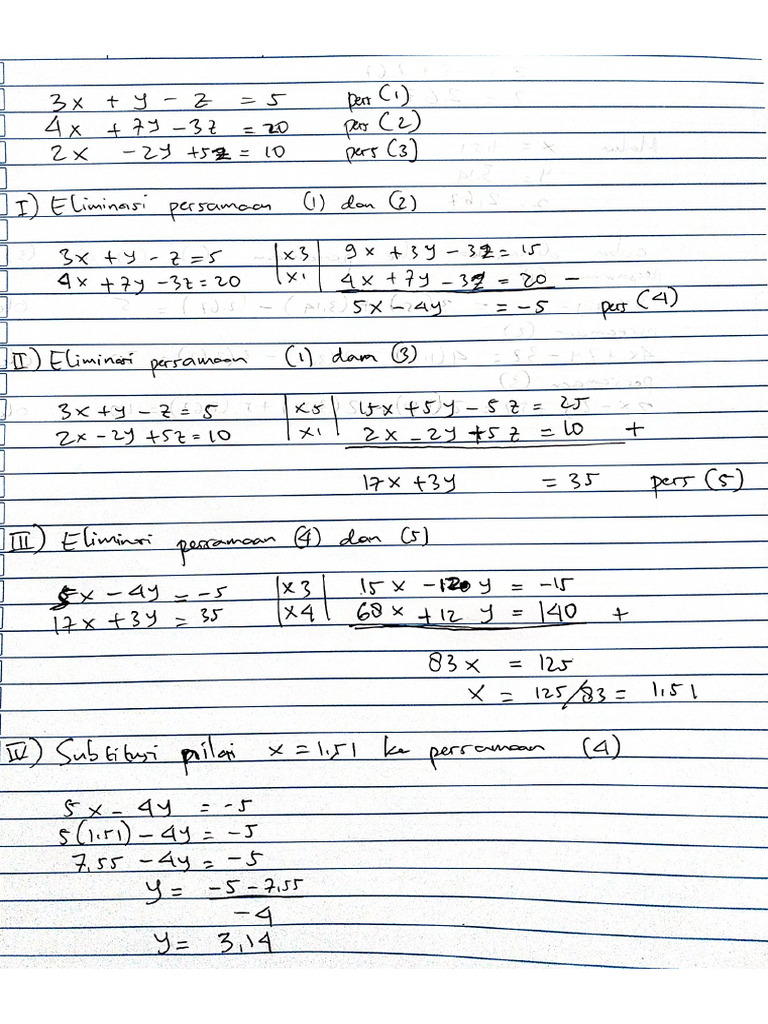 3x + y - z = 5 pers (1)
4x + 7y - 3z = 20 pers (2)
2x - 2y + 5z = 10 pers (3)
I) Eliminasi persamaan (1) dan (2)
3x + y - z = 5 | x3 | 9x + 3y - 3z = 15
4x + 7y - 3z = 20 | x1 | 4x + 7y - 3z = 20 -
5x - 4y = -5 pers (4)
II) Eliminasi persamaan (1) dam (3)
3x + y - z = 5 | x5 | 15x + 5y - 5z = 25
2x - 2y + 5z = 10 | x1 | 2x - 2y + 5z = 10 +
17x + 3y = 35 pers (5)
III) Eliminasi persamaan (4) dan (5)
5x - 4y = -5 | x3 | 15x - 12y = -15
17x + 3y = 35 | x4 | 68x + 12y = 140 +
83x = 125
x = 125/83 = 1,51
IV) Substitusi nilai x = 1,51 ke persamaan (4)
5x - 4y = -5
5(1,51) - 4y = -5
7,55 - 4y = -5
y = -5 - 7,55
-4
y = 3,14